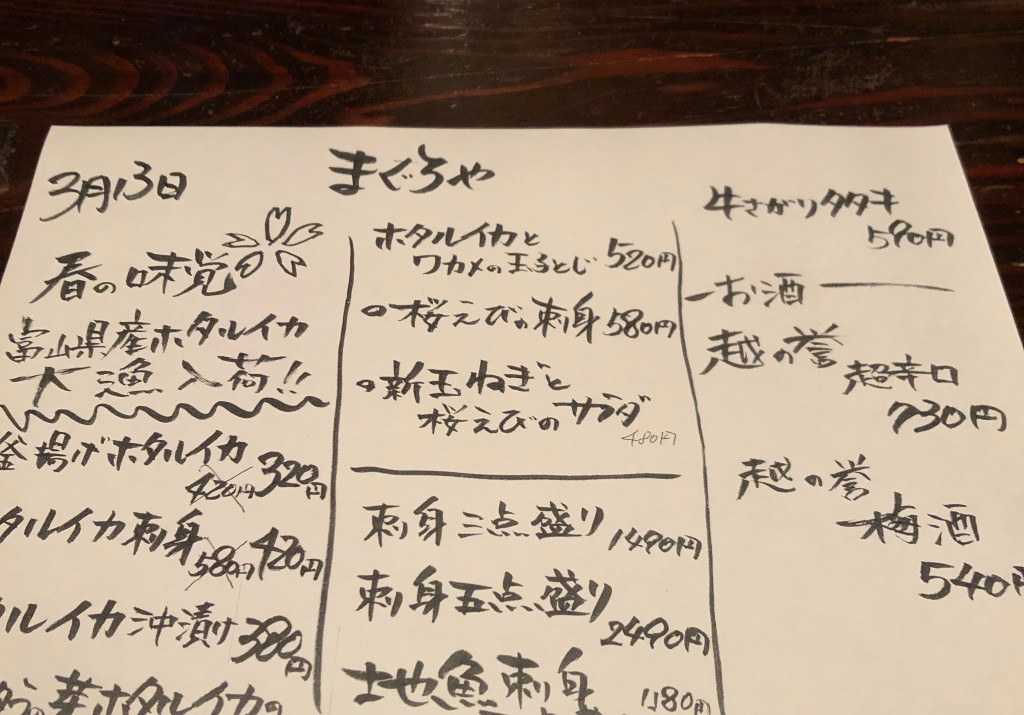 3月13日
まぐろや
春の味覚
富山県産ホタルイカ
大漁入荷!!
釜揚げホタルイカ
420円 320円
タルイカ刺身
580円 420円
タルイカ沖漬け 380円
ホタルイカの
ホタルイカと
ワカメの玉子とじ 520円
桜えびの刺身 580円
新玉ねぎと
桜えびのサラダ
480円
刺身三点盛り 1490円
刺身五点盛り
2490円
土地魚刺身
1180円
牛さがりタタキ
590円
お酒
越の誉
超辛口
730円
越の誉
梅酒
540円